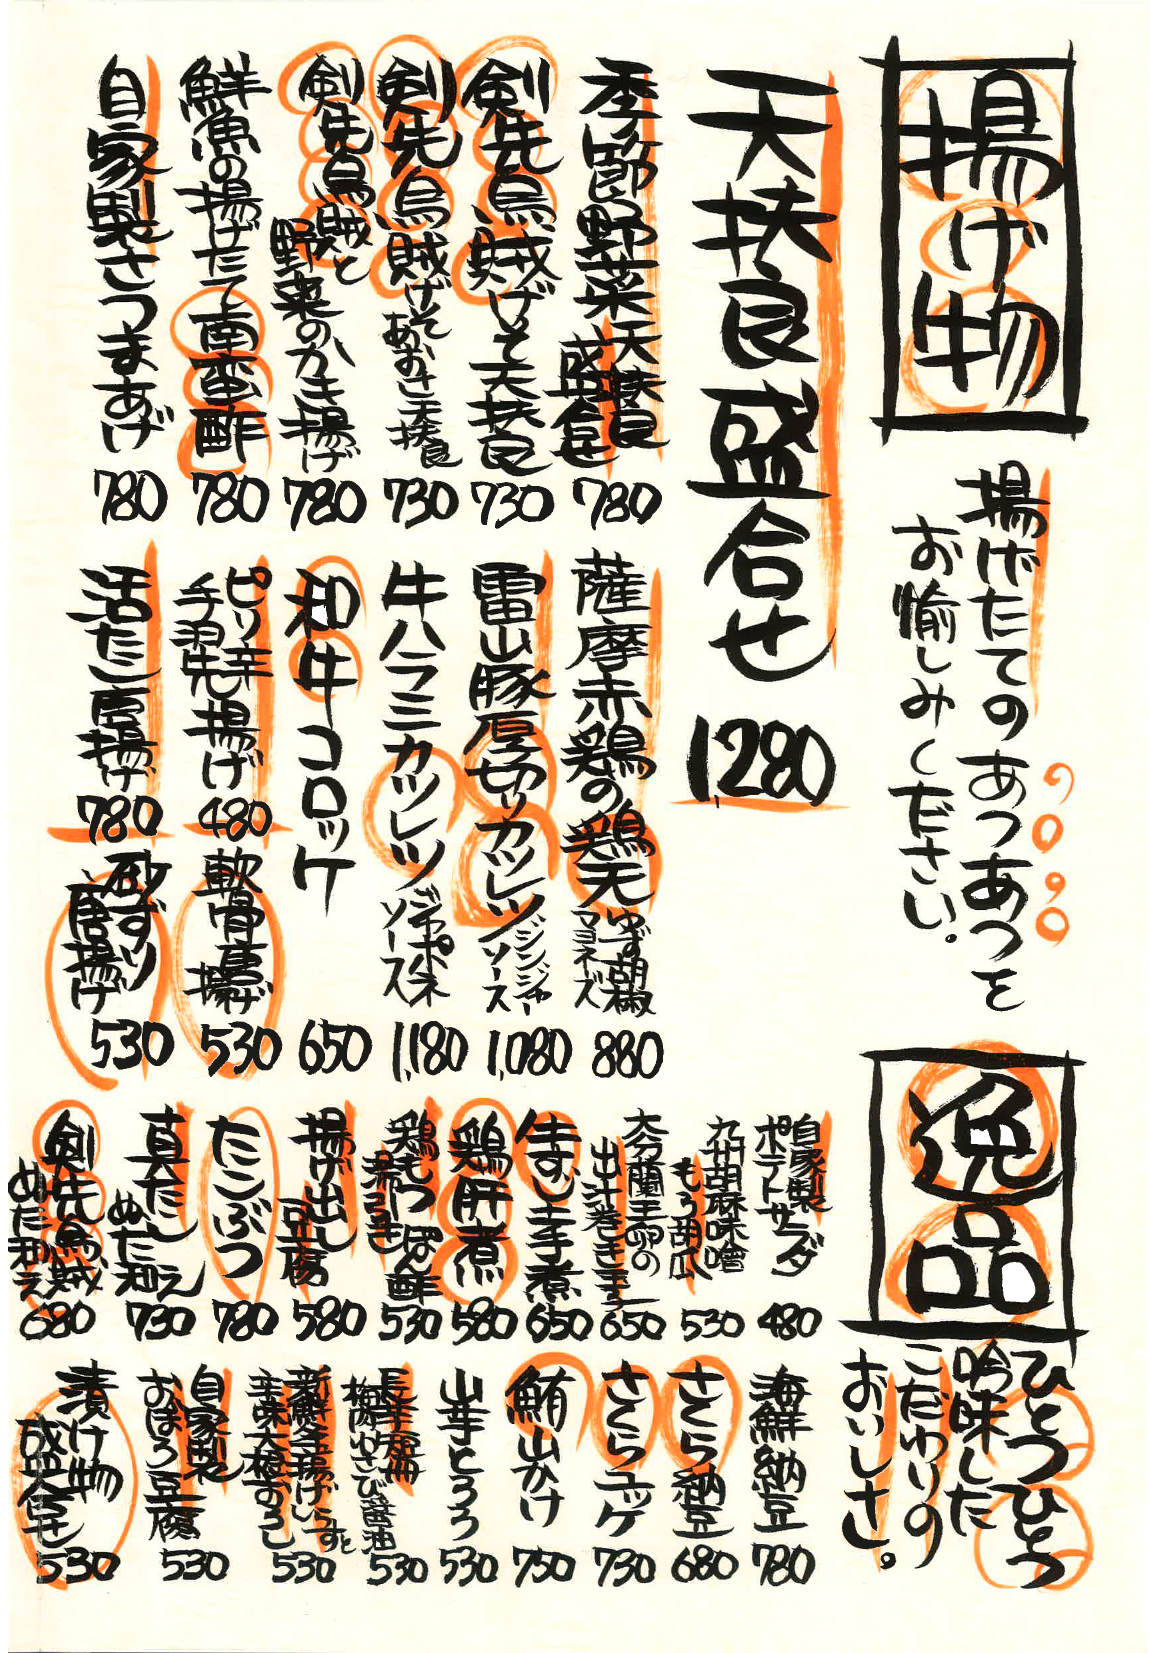 揚げ物
揚げたてのあつあつを
お愉しみください。
天扶良盛合せ
1,280
季節野菜天扶良
盛合せ
780
剣先烏賊げそ天扶良
730
剣先烏賊げそ
あおさ天扶良
730
剣先烏賊と
野菜のかき揚げ
780
鮮魚の揚げたて南蛮酢
780
自家製さつまあげ
780
薩摩赤鶏の鶏天
ゆず胡椒
マヨネーズ
880
雷山豚厚切りカツレツ
ジンジャー
ソース
1,080
牛ハラミカツレツ
ジャポネ
ソース
1,180
和牛コロッケ
650
ピリ辛
手羽先揚げ
480
軟骨唐揚げ
530
活たこ唐揚げ
780
砂ずり
唐揚げ
530
逸品
ひとつひとつ
吟味した
こだわりの
おいしさ。
自家製
ポテトサラダ
480
九州胡麻味噌
もろ胡瓜
530
蘭王卵の
出汁巻き玉子
650
牛すじ土手煮
650
鶏肝煮
580
鶏もつぽん酢
530
揚げ出し
豆腐
580
たこぶつ
780
真だこ
ぬた和え
730
剣先烏賊
ぬた和え
680
海鮮納豆
780
さくら納豆
680
さくらユッケ
730
鮪山かけ
750
山芋とろろ
530
長芋短冊
梅肉わさび醤油
530
新鮮釜揚げしらすと
辛味大根おろし
530
自家製
おぼろ豆腐
530
漬け物
盛合せ
530